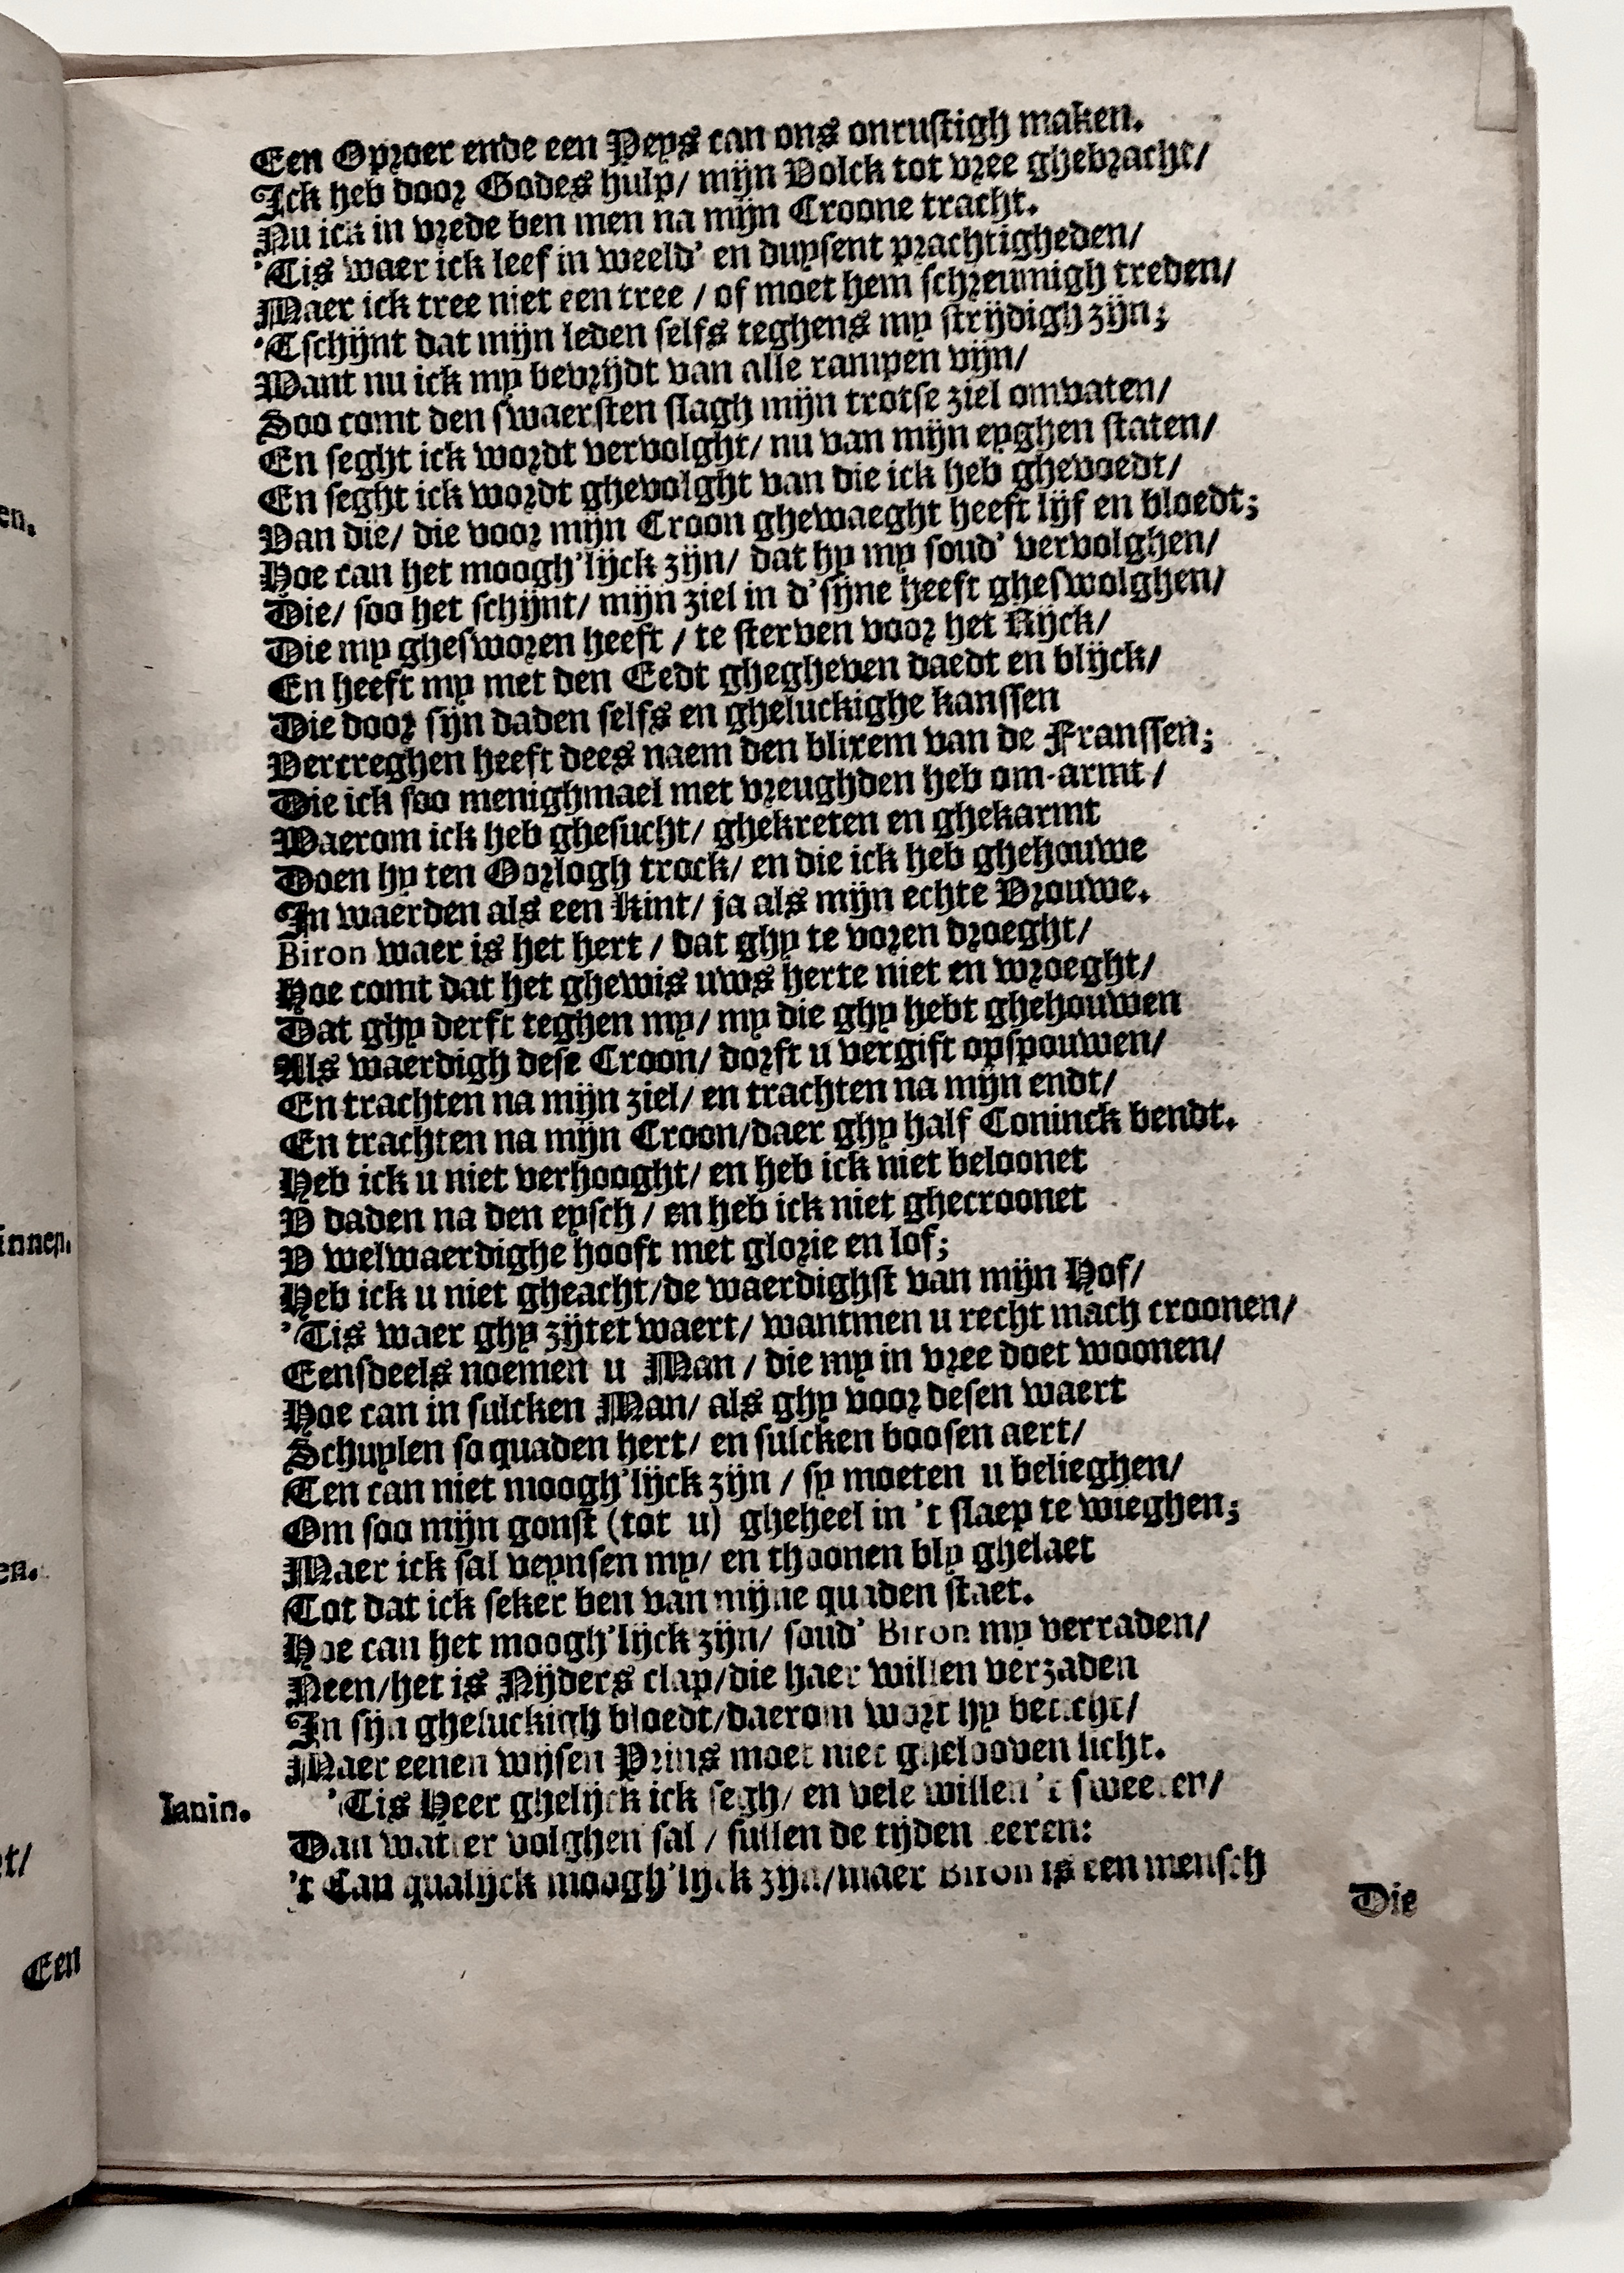 Een Oproer ende een Peys can ons onrustigh maken.
Ick heb door Godes hulp/ mijn Volck tot vree ghebracht/
Nu ick in vrede ben men na mijn Croone tracht.
'Tis waer ick leef in weeld' en duysent prachtigheden/
Maer ick tree niet een tree / of moet hem schreumigh treden/
'Tschijnt dat mijn leden selfs teghens my strijdigh zijn;
Want nu ick my bevrijdt van alle rampen vijn/
Soo comt den swaersten slagh mijn trotse ziel omvaten/
En seght ick wordt vervolght/ nu van mijn eyghen staten/
En seght ick wordt ghevolght van die ick heb ghevoedt/
Van die/ die voor mijn Croon ghewaeght heeft lijf en bloedt;
Hoe can het moogh'lijck zijn/ dat hy my soud' vervolghen/
Die/ soo het schijnt/ mijn ziel in d'sijne heeft gheswolghen/
Die my ghesworen heeft / te sterven voor het Rijck/
En heeft my met den Eedt ghegheven daedt en blijck/
Die door sijn daden selfs en gheluckighe kanssen
Vercreghen heeft dees naem den blixem van de Franssen;
Die ick soo menighmael met vreughden heb om-armt /
Waerom ick heb ghesucht/ ghekreten en ghekarmt
Doen hy ten Oorlogh trock/ en die ick heb ghehouwe
In waerden als een Kint/ ja als mijn echte Vrouwe.
Biron waer is het hert / dat ghy te voren droeght/
Hoe comt dat het ghewis uws herte niet en wroeght/
Dat ghy derft teghen my/ my die ghy hebt ghehouwen
Als waerdigh dese Croon/ dorft u vergift opspouwen/
En trachten na mijn ziel/ en trachten na mijn endt/
En trachten na mijn Croon/daer ghy half Coninck bendt.
Heb ick u niet verhooght/ en heb ick niet beloonet
V daden na den eysch / en heb ick niet ghecroonet
V welwaerdighe hooft met glorie en lof;
Heb ick u niet gheacht/de waerdighst van mijn Hof/
'Tis waer ghy zijtet waert/ wantmen u recht mach croonen/
Eensdeels noemen u Man / die my in vree doet woonen/
Hoe can in sulcken Man/ als ghy voor desen waert
Schuylen so quaden hert/ en sulcken boosen aert/
Ten can niet moogh'lijck zijn / sy moeten u belieghen/
Om soo mijn gonst (tot u) gheheel in 't slaep te wieghen;
Maer ick sal veynsen my/ en thoonen bly ghelaet
Tot dat ick seker ben van mijne quaden staet.
Hoe can het moogh'lijck zijn/ soud' Biron my verraden/
Neen/het is Nijders clap/die haer willen verzaden
In sijn gheluckigh bloedt/daerom wort hy beticht/
Maer eenen wijsen Prins moet niet ghelooven licht.
Ianin. 'Tis Heer ghelijck ick segh/ en vele willen 't sweeren/
Dan watter volghen sal / sullen de tijden leeren:
't Can qualijck moogh'lijck zijn/maer Biron is een mensch
Die
en.
innen.
en.
t/
Een